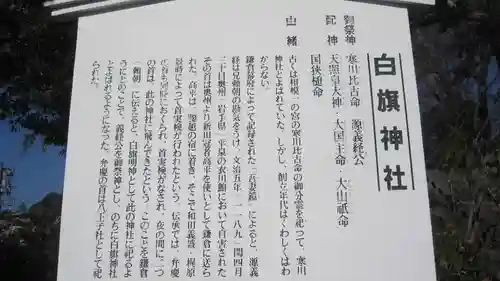 白旗神社
御祭神 寒川比古命 源義経公
配神 天照皇大神・大国主命・大山祇命
国狭槌命
由緒 古くは相模一の宮の寒川比古命の御分霊を祀って、寒川
神社とよばれていた。しかし、創立年代はくわしくはわ
からない。
鎌倉幕府によって記録された「吾妻鏡」によると、源義
経は兄頼朝の勘気をうけ、文治五年(一一八九)閏四月
三十日奥州(岩手県)平泉の衣川館において自害された
その首は奥州より新田冠者高平を使いとして鎌倉に送ら
れた。高平は、腰越の宿に着き、そこで和田義盛・梶原
景時によって首実検が行われたという。伝承では、弁慶
の首も同時におくられ、首実検がなされ、夜の間に二つ
の首は、此の神社に飛んできたという。このことを鎌倉
(頼朝)に伝えると、白旗明神として此の神社に祀るよ
うにとのことで、義経公を御祭神とし、のちに白旗神社
とよばれるようになった。弁慶の首は八王子社として祀
られた。